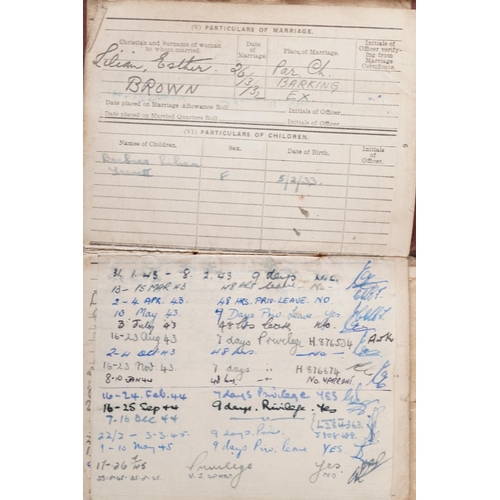 (V) PARTICULARS OF MARRIAGE.
Christian and Surname of woman to whom married.
Date of Marriage.
Place of Marriage.
Initials of Officer verifying from Marriage Certificate.
Lilian, Esther
BROWN
26/3/32
Par. Ch.
BARKING
EX
Date placed on Marriage Allowance Roll
Initials of Officer
Date placed on Married Quarters Roll
Initials of Officer
(VI) PARTICULARS OF CHILDREN.
Names of Children.
Sex.
Date of Birth.
Initials of Officer
Barbara Lilian
F
5/2/33.
31.1.43 - 8.2.43 9 days
13 - 15 MAR 43 48 Hrs No
2 - 4 APR. 43. 48 HRS. PRIV. LEAVE. NO.
10 May 43. 9 Days Priv. Leave Yes
3 July 43 48 Hrs Leave No.
16-23 Aug 43 7 days Privilege H 876504
2-4 Oct 43 48 hrs. No
16-23 Nov 43. 7 days H 876674
8-10 JAN 44 48 hrs NO WARRANT.
16-24. Feb 44 7 days Privilege YES
16-25 Sep 44 9 days. Privilege. Yes
7-16 Dec 44 9 days
22/2 - 3.3.45. 9 days Priv.
1 - 10 May 45 9 days Priv. leave YES.
17-26 45 Privilege Yes
NO